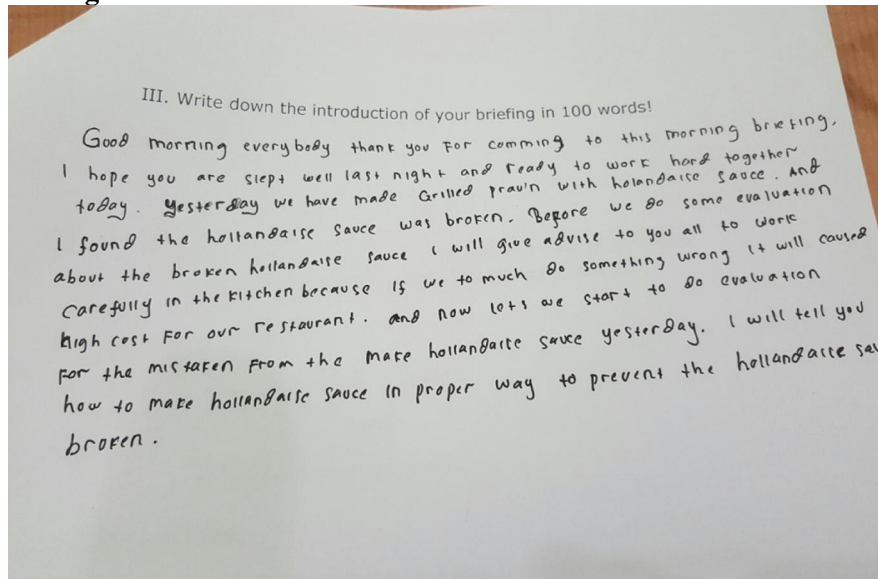 III. Write down the introduction of your briefing in 100 words!
Good morning everybody thank you For comming to this morning briefing.
I hope you are slept well last night and ready to work hard together
today. Yesterday we have made Grilled prawn with holandaise sauce. And
I found the hollandaise sauce was broken. Before we do some evaluation
about the broken hollandaise sauce I will give advise to you all to work
carefully in the kitchen because if we to much do something wrong it will caused
high cost For our restaurant. and now lets we start to do evaluation
For the mistaken From the make hollandaise sauce yesterday. I will tell you
how to make hollandaise sauce in proper way to prevent the hollandaise
broken.